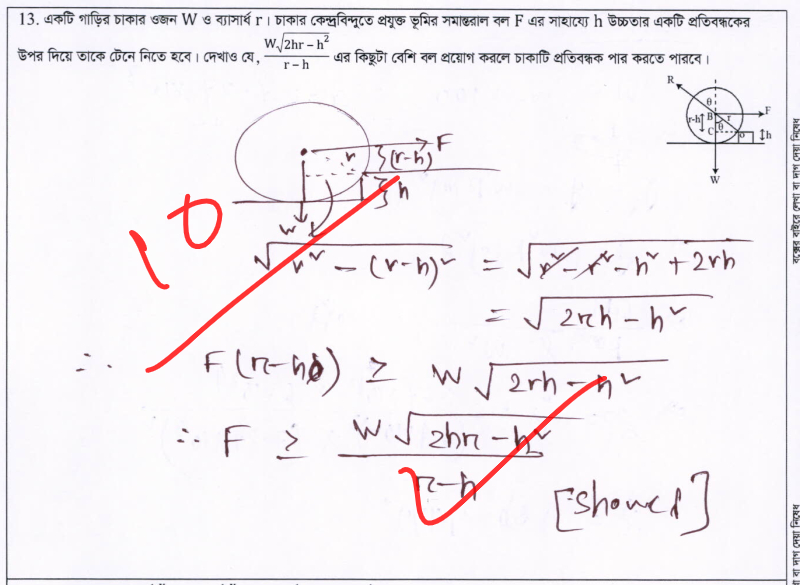 13. একটি গাড়ির চাকার ওজন W ও ব্যাসার্ধ r । চাকার কেন্দ্রবিন্দুতে প্রযুক্ত ভূমির সমান্তরাল বল F এর সাহায্যে h উচ্চতার একটি প্রতিবন্ধকের
উপর দিয়ে তাকে টেনে নিতে হবে। দেখাও যে, W√(2hr – h²) / (r – h) এর কিছুটা বেশি বল প্রয়োগ করলে চাকাটি প্রতিবন্ধক পার করতে পারবে।
R
θ
r-h B F
r
C θ o h
W
F
r (r-h)
h
W
10
√(r² - (r-h)²) = √(r² - r² - h² + 2rh)
= √(2rh - h²)
∴ F(r-h) ≥ W√(2rh - h²)
∴ F ≥ W√(2hr - h²) / (r-h)
[Showed]
বক্সের বাইরে লেখা বা দাগ দেয়া নিষেধ
বা দাগ দেয়া নিষেধ